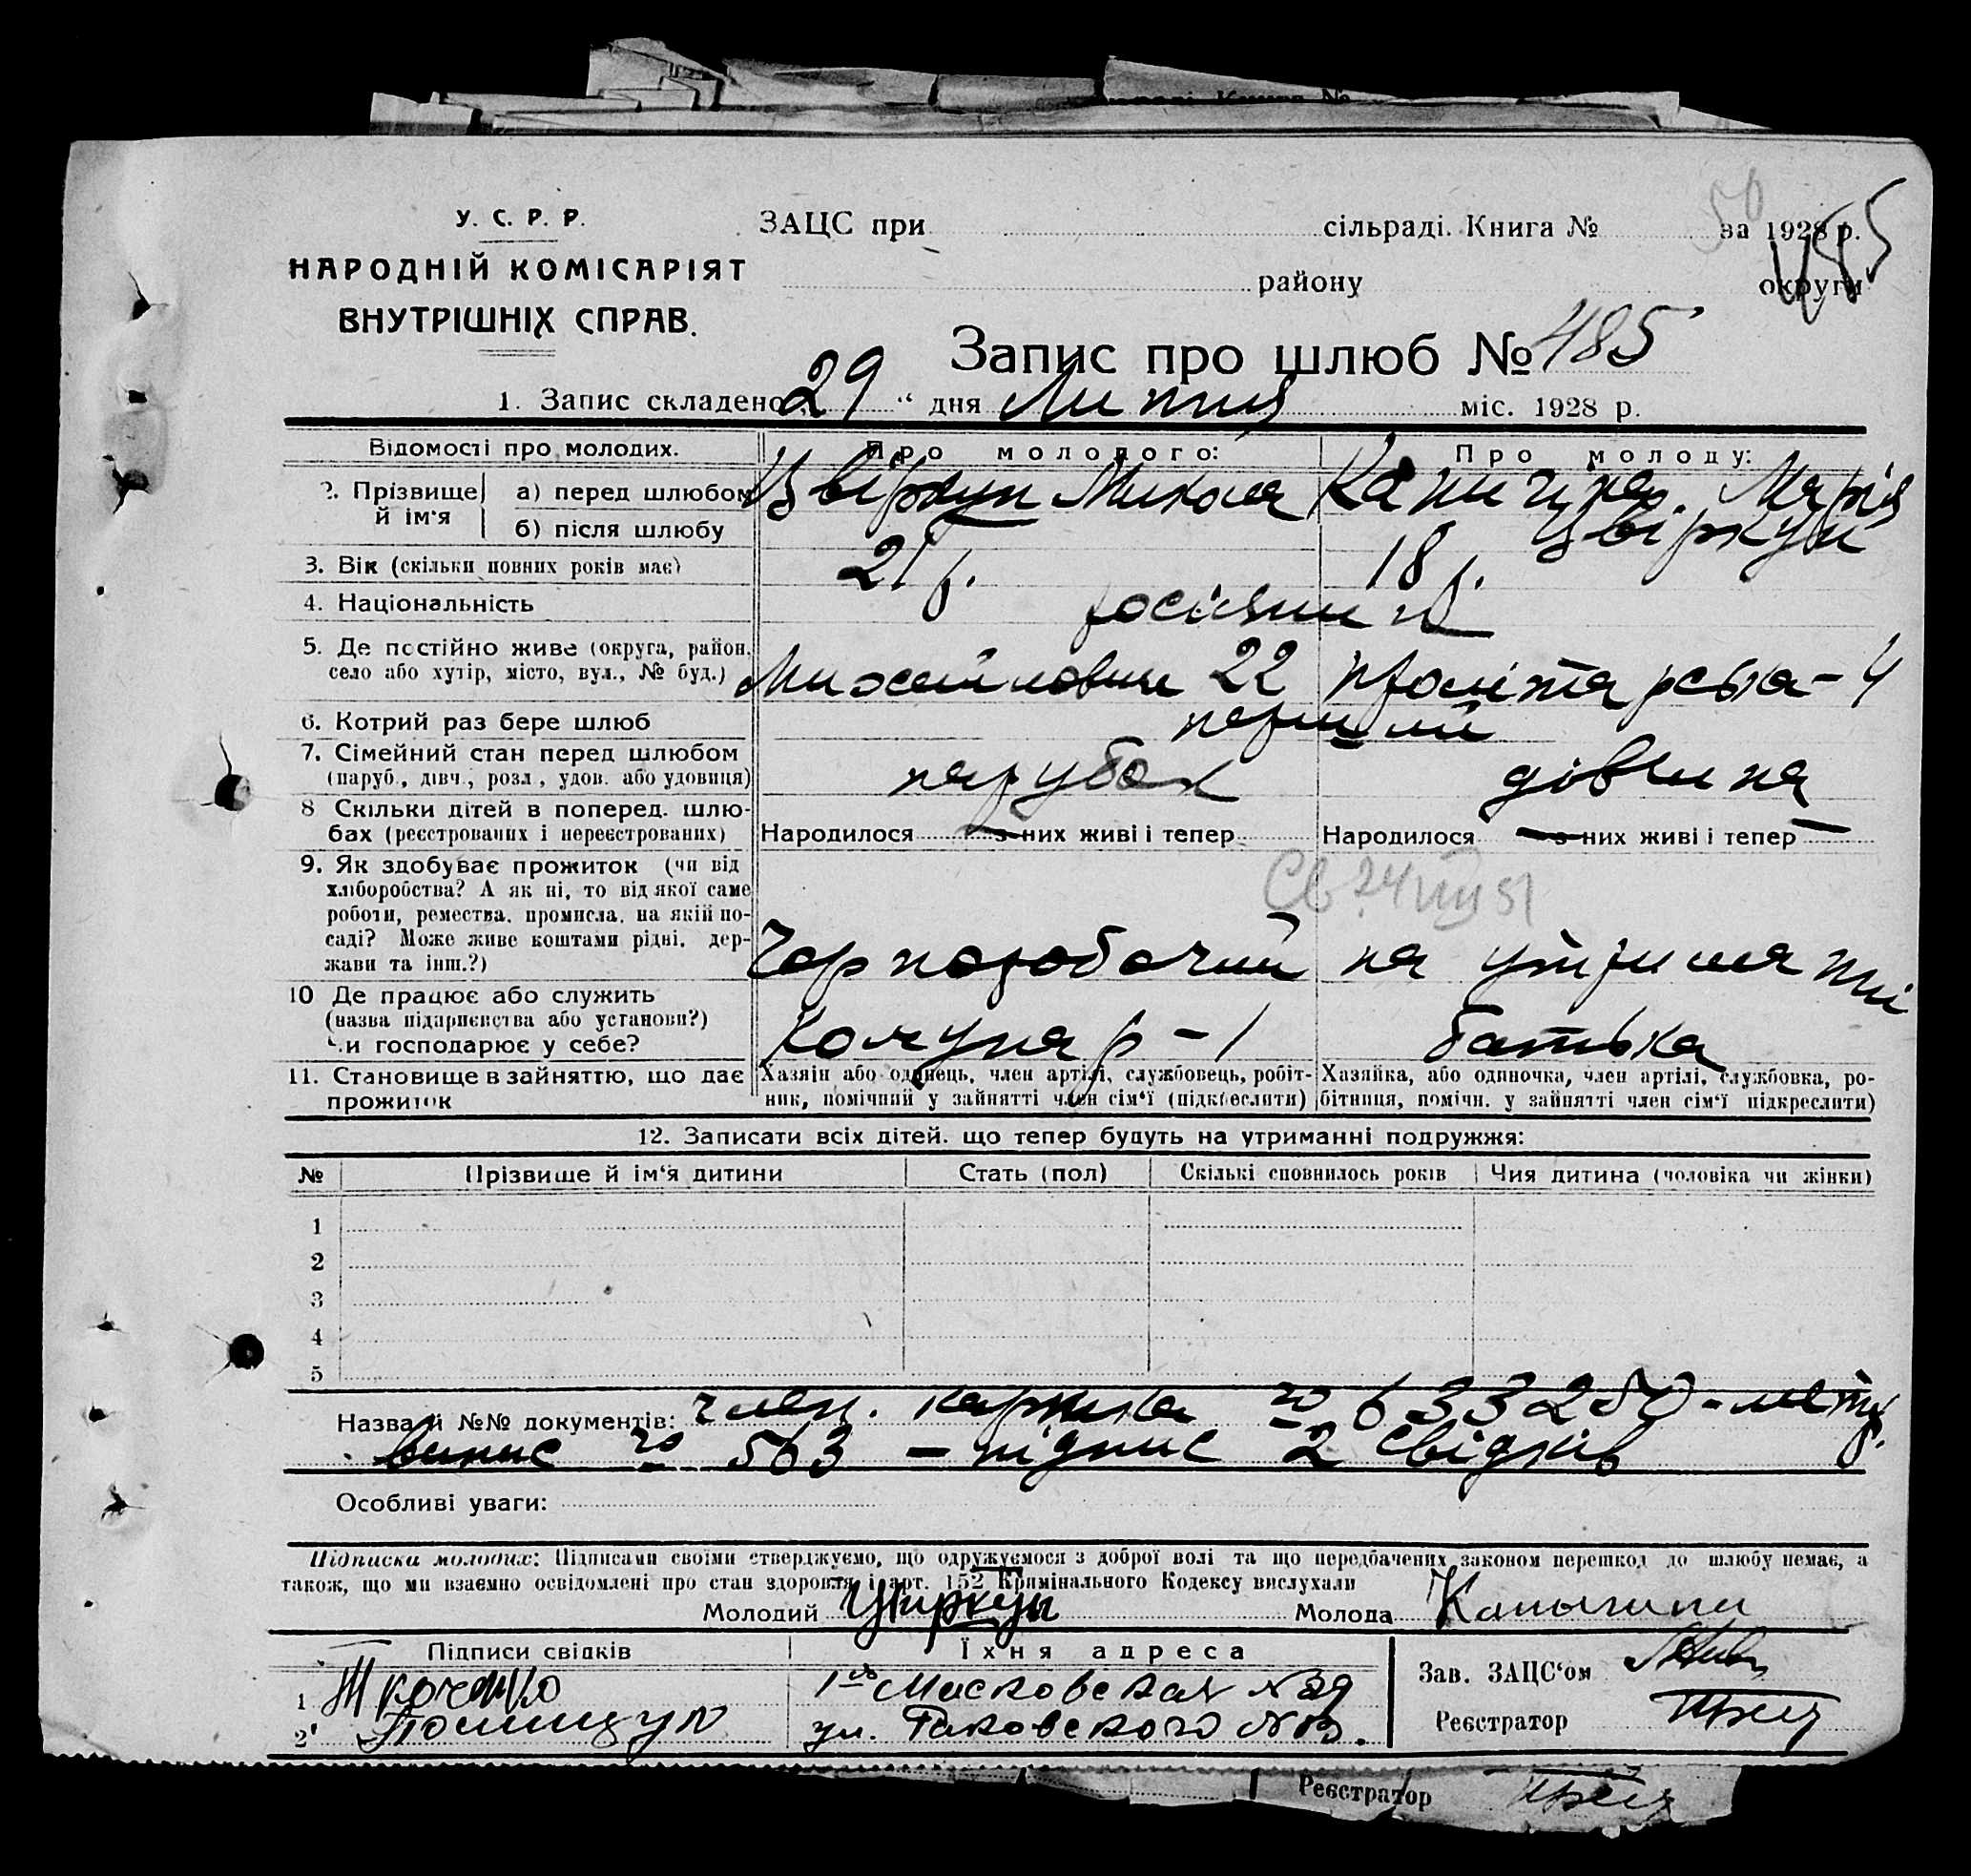 У. С. Р. Р.
НАРОДНІЙ КОМІСАРІЯТ
ВНУТРІШНІХ СПРАВ.
ЗАЦС при сільраді. Книга № 50 за 1928 р.
485
району округи
Запис про шлюб № 485
1. Запис складено „ 29 “ дня Липня міс. 1928 р.
Відомості про молодих. Про молодого: Про молоду:
2. Прізвище й ім'я а) перед шлюбом Цвіркун Микола Каничина Марія
б) після шлюбу Цвіркун
3. Вік (скільки повних років має) 21 р. 18 р.
4. Національність росіяни
5. Де постійно живе (округа, район, село або хутір, місто, вул., № буд.) 22 Пролітарська - 4
6. Котрий раз бере шлюб перший
7. Сімейний стан перед шлюбом (паруб., дівч., розл., удов. або удовиця) парубок дівчина
8 Скільки дітей в поперед. шлюбах (реєстрованих і нереєстрованих) Народилося з них живі і тепер Народилося з них живі і тепер
9. Як здобуває прожиток (чи від хліборобства? А як ні, то від якої саме роботи, ремества, промисла, на якій посаді? Може живе коштами рідні, держави та інш.?) Чорноробочий на утриманні
10 Де працює або служить (назва підприємства або установи?) Чи господарює у себе? Комунар - 1 батька
11. Становище в зайняттю, що дає прожиток Хазяїн або одинець, член артілі, службовець, робітник, помічний у зайнятті член сім'ї (підкреслити) Хазяйка, або одиночка, член артілі, службовка, робітниця, помічн. у зайнятті член сім'ї підкреслити)
12. Записати всіх дітей, що тепер будуть на утриманні подружжя:
№ Прізвище й ім'я дитини Стать (пол) Скількі сповнилось років Чия дитина (чоловіка чи жінки)
1
2
3
4
5
Назва й №№ документів: член. картка № 633250 -
випис № 563 – підпис 2 свідків
Особливі уваги:
Підписка молодих: Підписами своїми стверджуємо, що одружуємося з доброї волі та що передбачених законом перешкод до шлюбу немає, а
також, що ми взаємно освідомлені про стан здоров'я і арт. 152 Кримінального Кодексу вислухали
Молодий Цвиркун Молода
Підписи свідків Їхня адреса
1 Ткаченко 1ая Масковская №29
2 Полищук ул. Раковского
Зав. ЗАЦС'ом
Реєстратор
Реєстратор